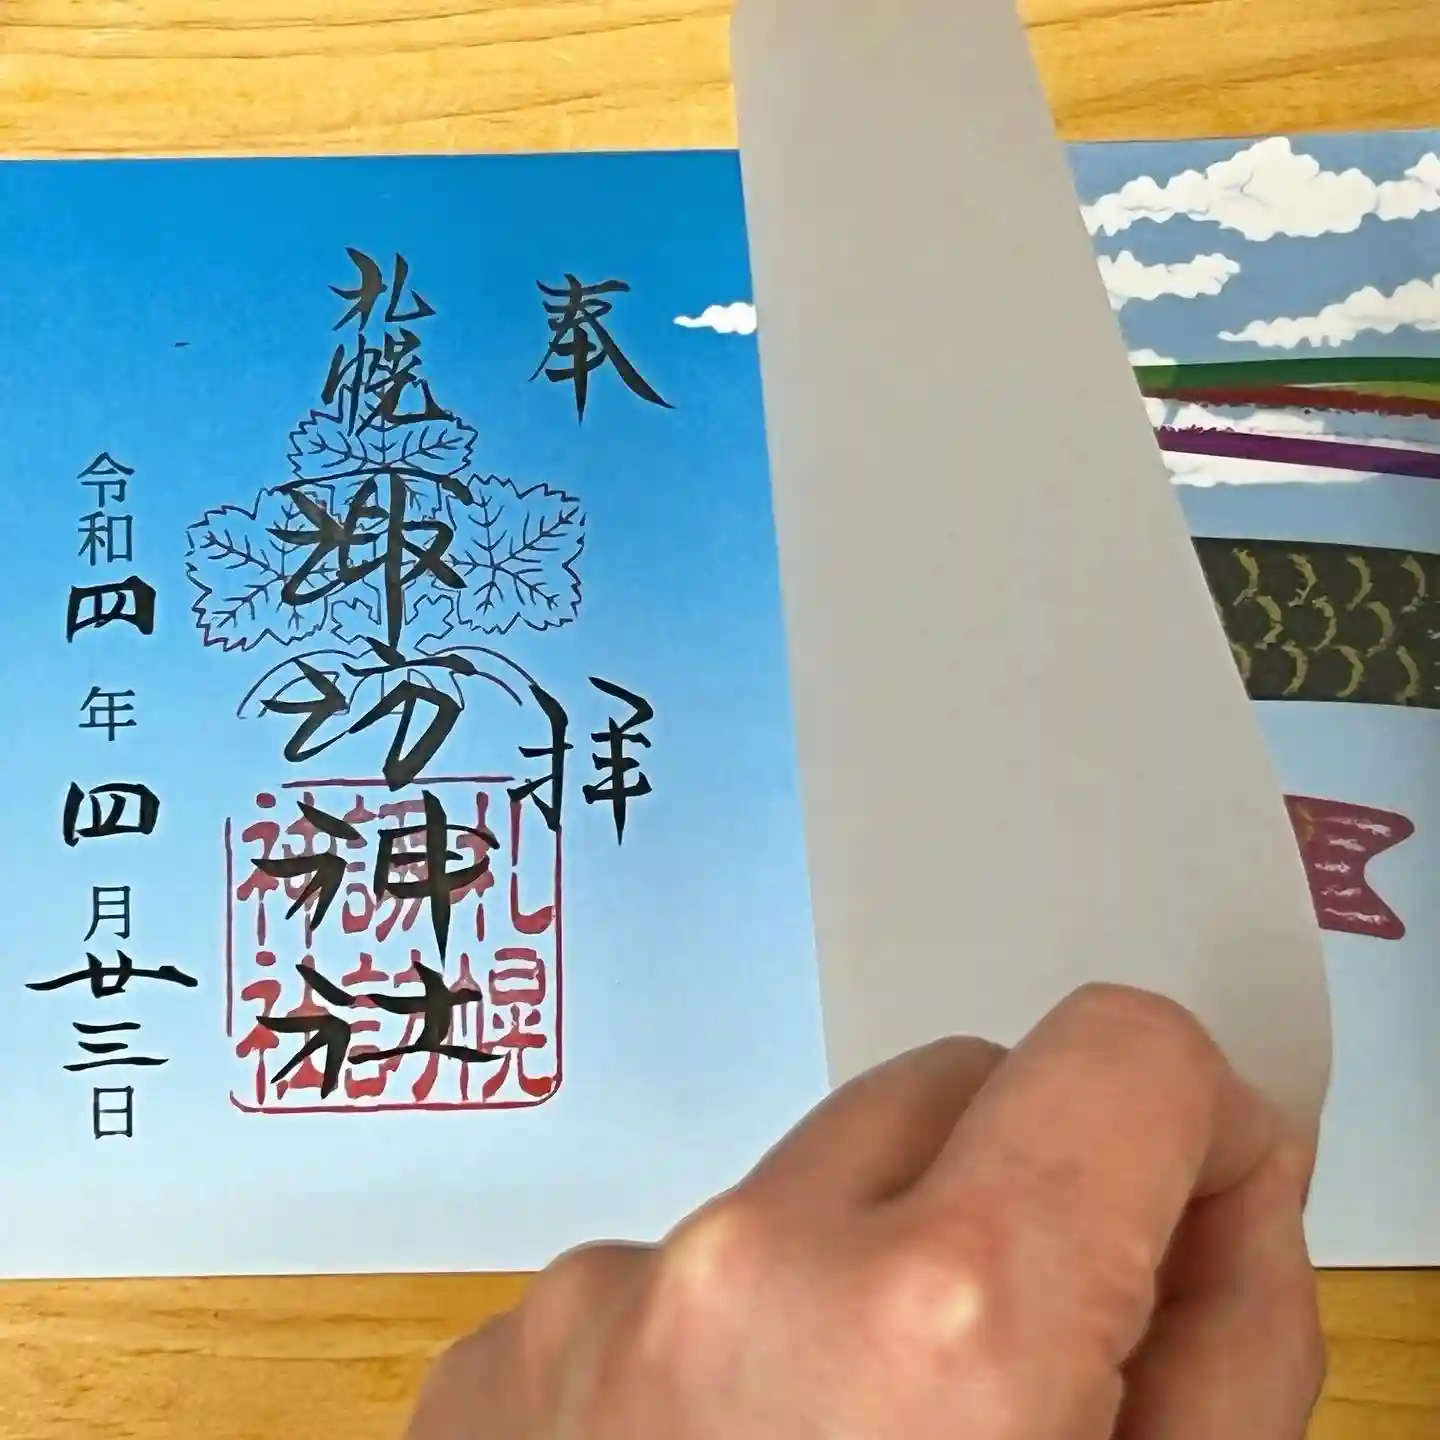 奉拝
札幌諏訪神社
札幌
諏訪
神社
令和四年四月廿三日